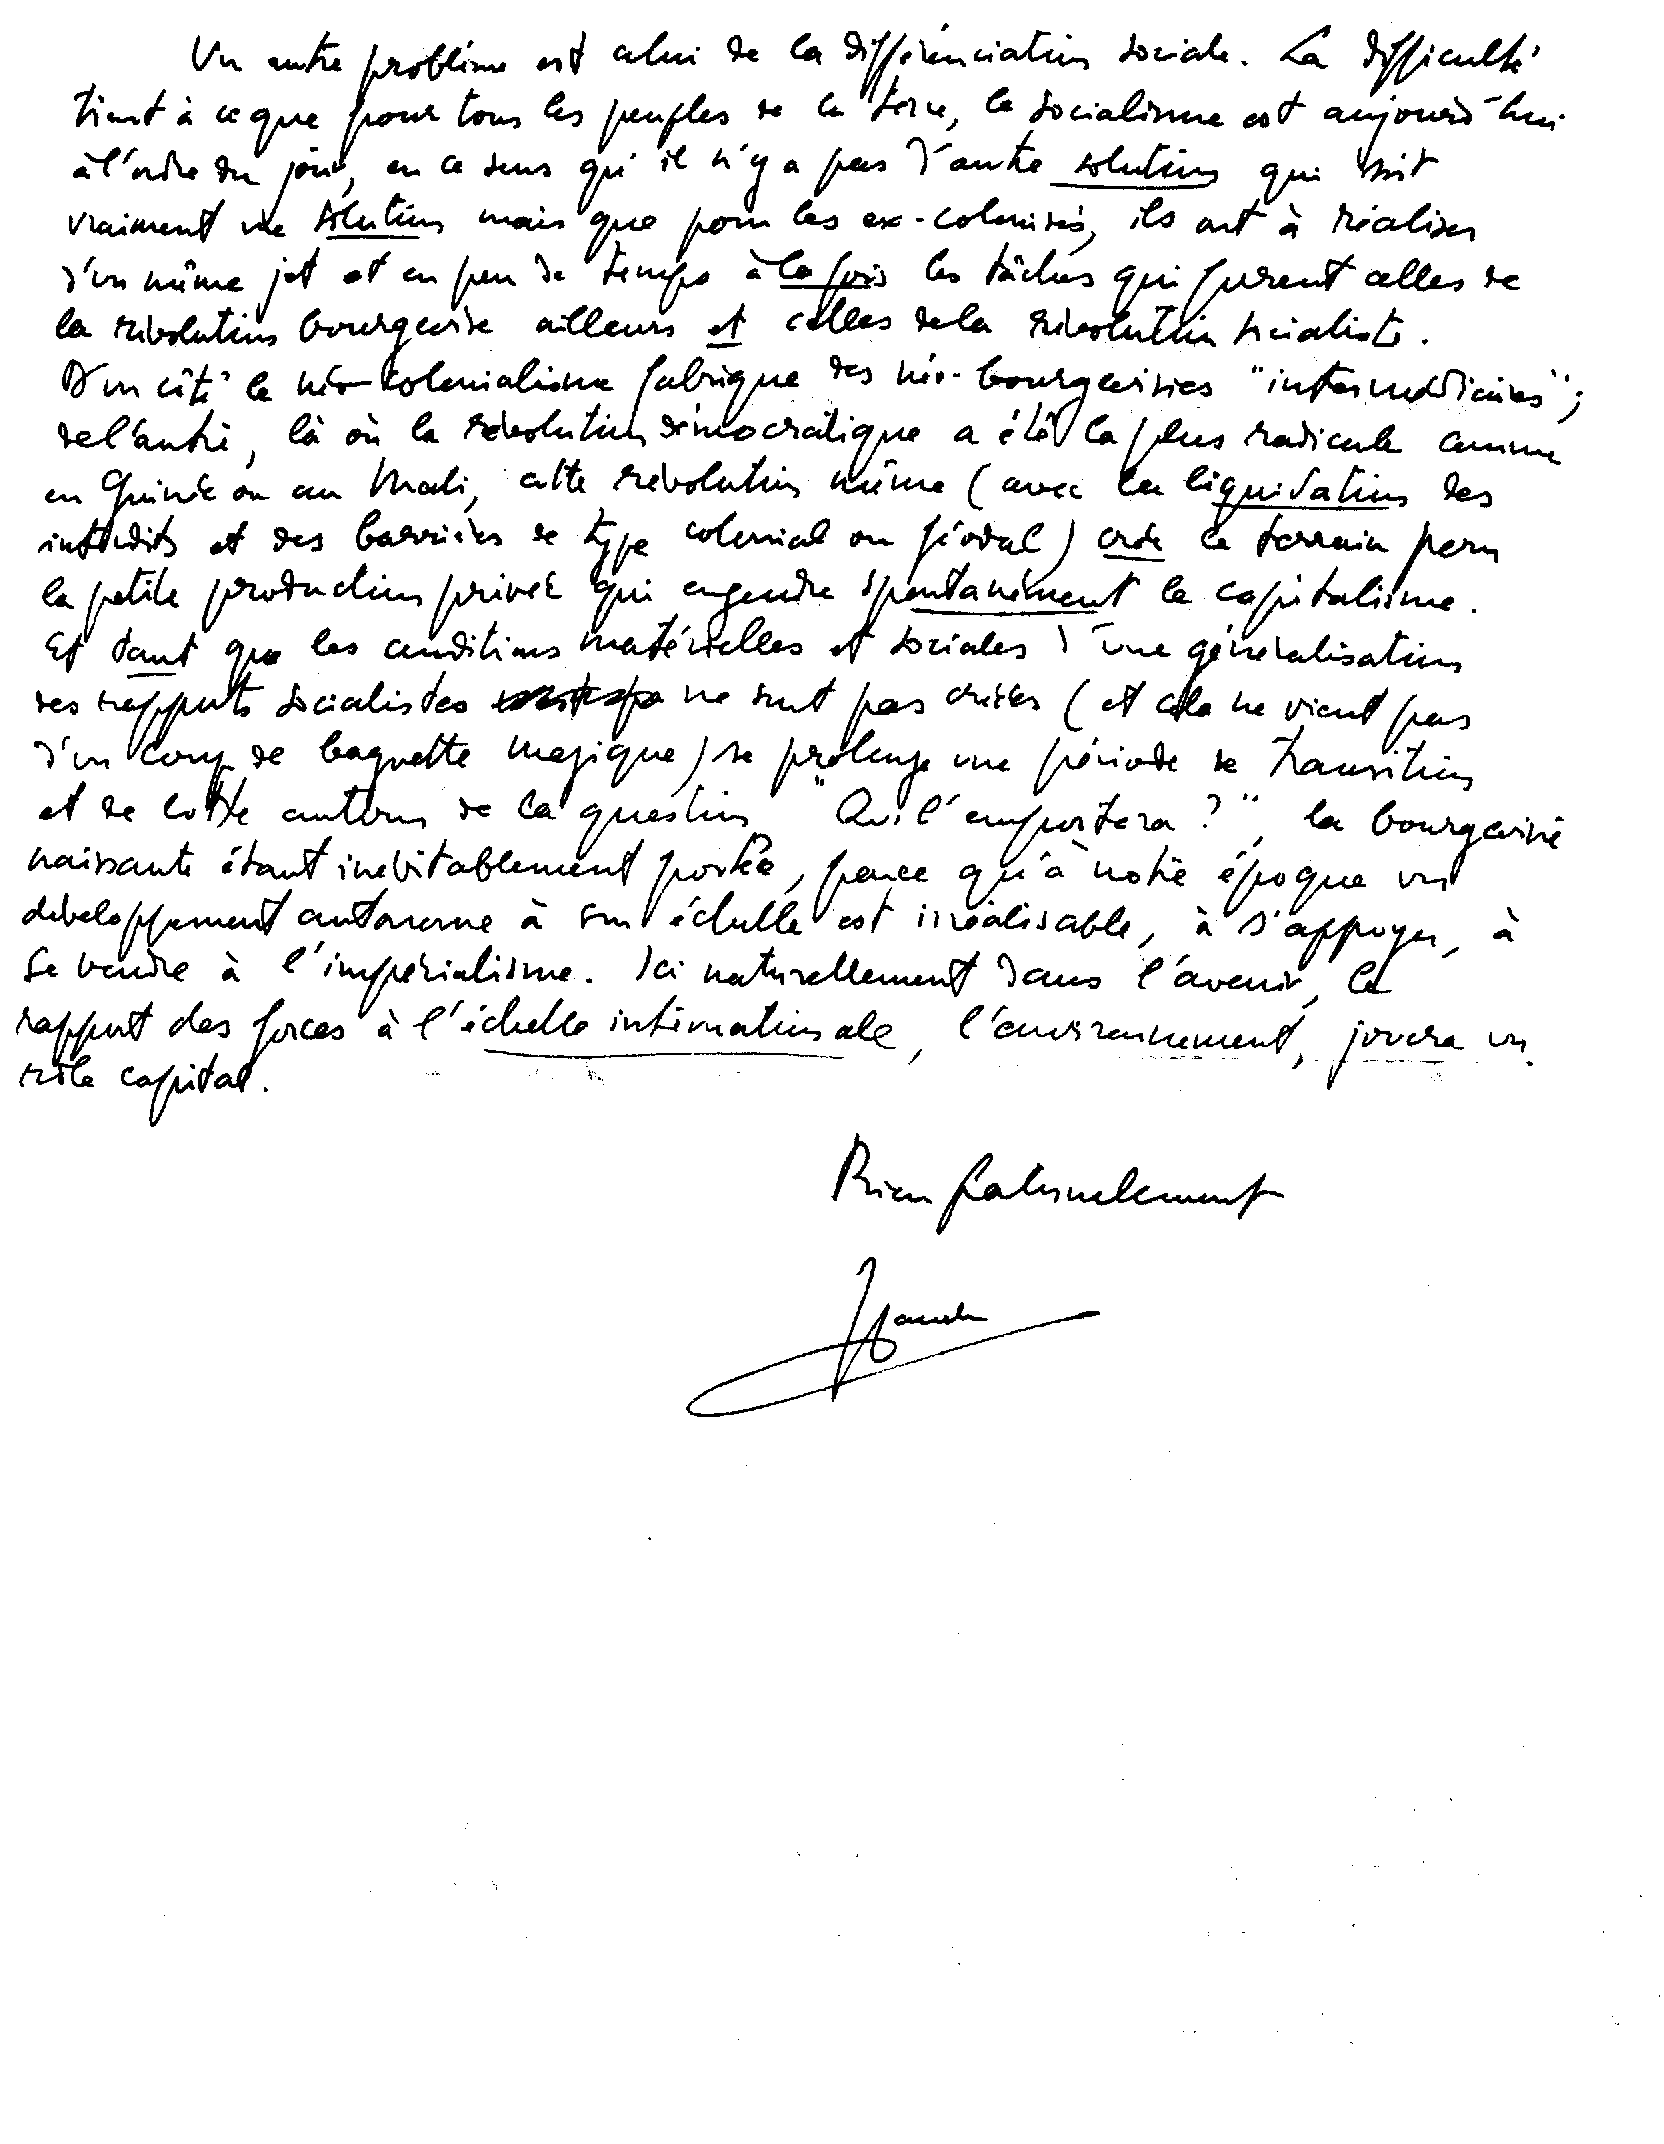 Un autre problème est celui de la différenciation sociale. La difficulté
tient à ce que pour tous les peuples de la terre, le socialisme est aujourd'hui
à l'ordre du jour, en ce sens qu'il n'y a pas d'autre solution qui soit
vraiment une solution mais que pour les ex-colonisés, ils ont à réaliser
d'un même jet et en peu de temps à la fois les tâches qui furent celles de
la révolution bourgeoise ailleurs et celles de la révolution socialiste.
D'un côté le néo-colonialisme fabrique des néo-bourgeoisies "intermédiaires";
de l'autre, là où la révolution démocratique a été la plus radicale comme
en Guinée ou au Mali, cette révolution même (avec la liquidation des
interdits et des barrières de type colonial ou féodal) crée le terrain pour
la petite production privée qui engendre spontanément le capitalisme.
Et tant que les conditions matérielles et sociales d'une généralisation
des rapports socialistes ne sont pas créées (et cela ne vient pas
d'un coup de baguette magique) se prolonge une période de transition
et de lutte autour de la question "Qui l'emportera?", la bourgeoisie
naissante étant inévitablement portée, parce qu'à notre époque un
développement autonome à son échelle est irréalisable, à s'appuyer, à
se vendre à l'impérialisme. Ici naturellement dans l'avenir, le
rapport des forces à l'échelle internationale, l'environnement, jouera un
rôle capital.
Bien fraternellement